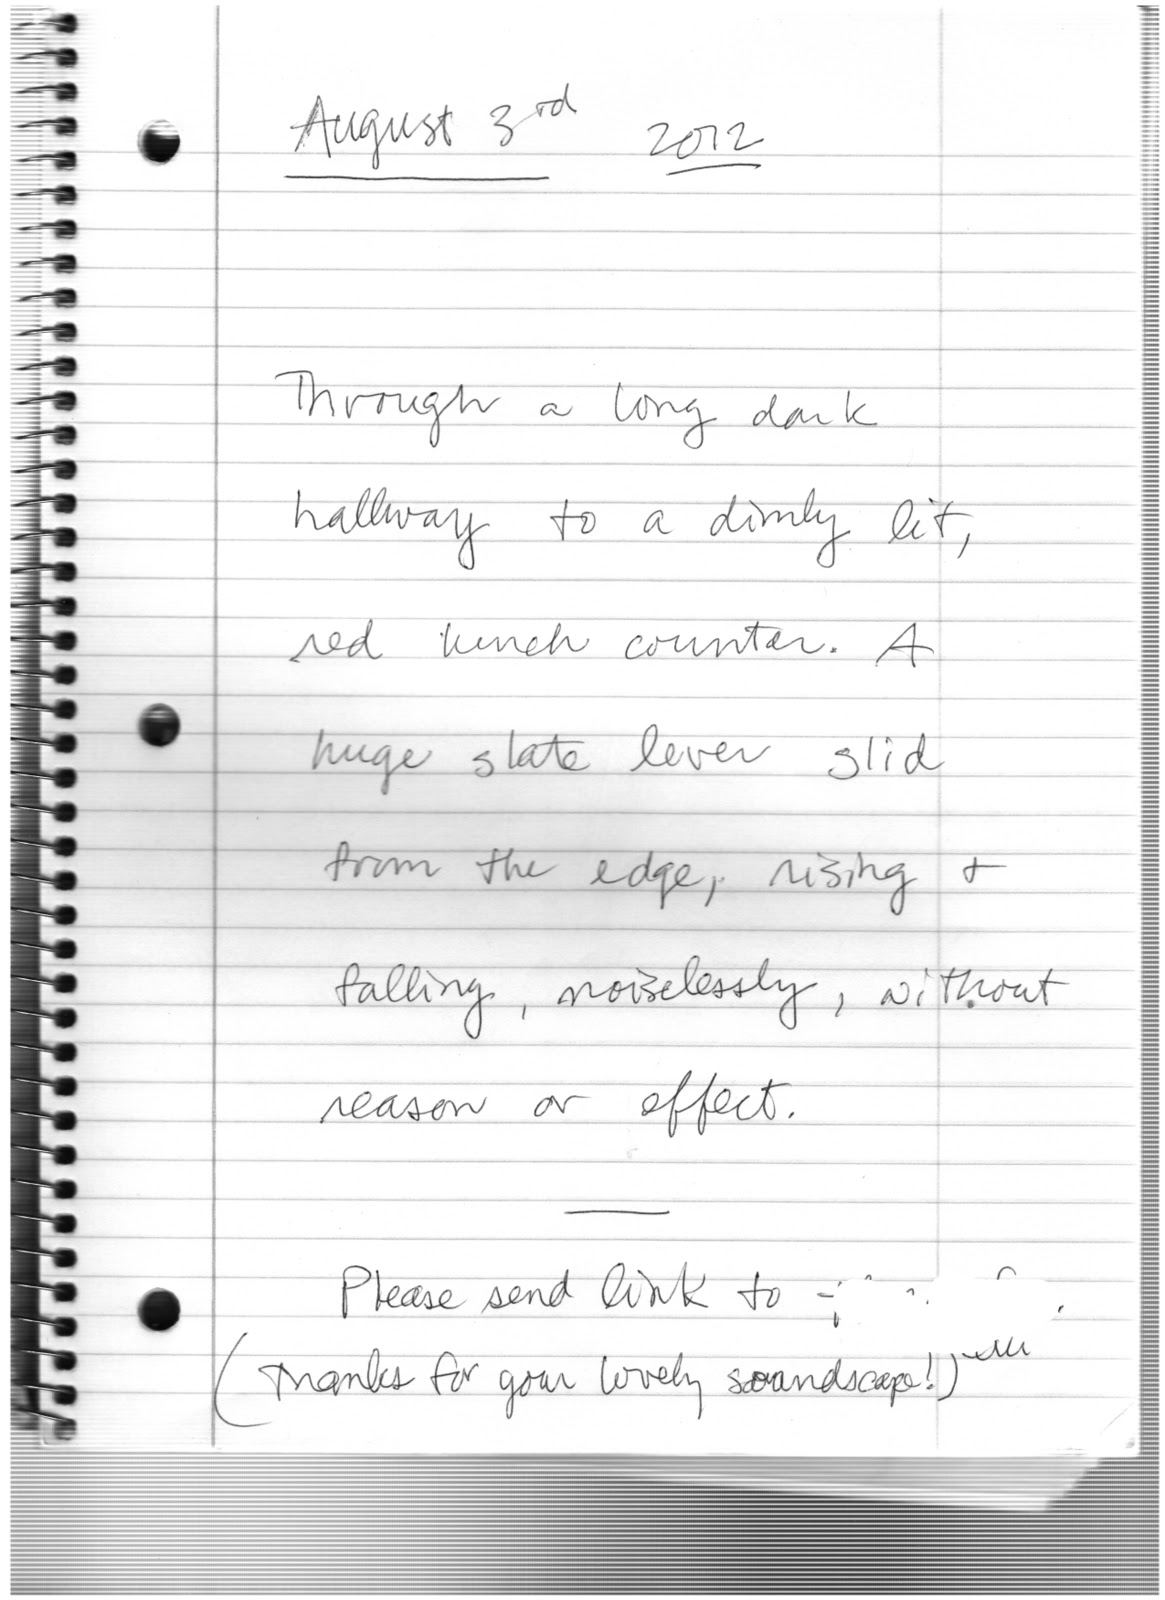 August 3rd 2012
Through a long dark
hallway to a dimly lit,
red lunch counter. A
huge slate lever slid
from the edge, rising +
falling, noiselessly, without
reason or effect.
Please send link to
(Thanks for your lovely soundscape!)